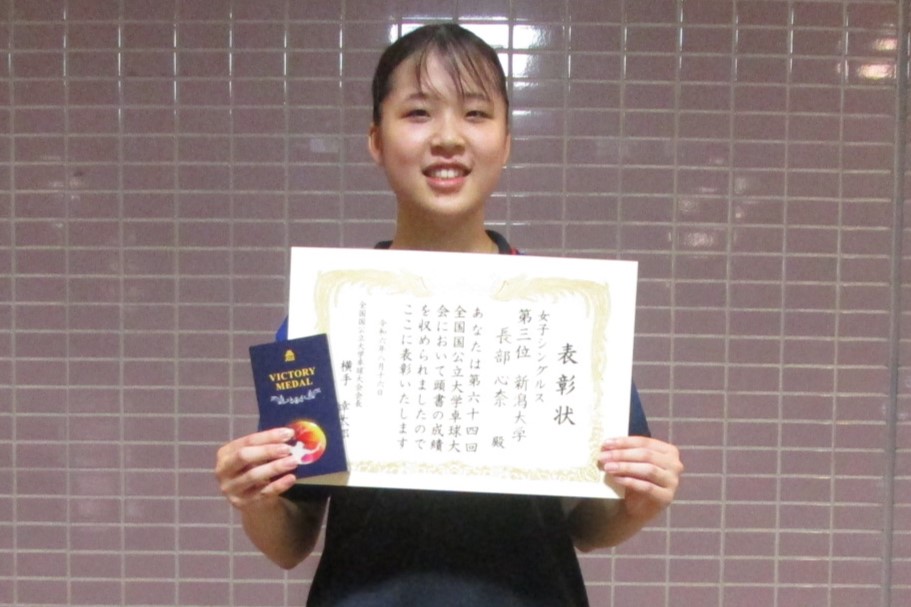 表彰状
女子シングルス
第三位 新潟大学
長部 心奈 殿
あなたは第六十四回
全国国公立大学卓球大
会において頭書の成績
を収められましたので
ここに表彰いたします
令和六年八月十六日
全国国公立大学卓球大会会長
横手
VICTORY
MEDAL